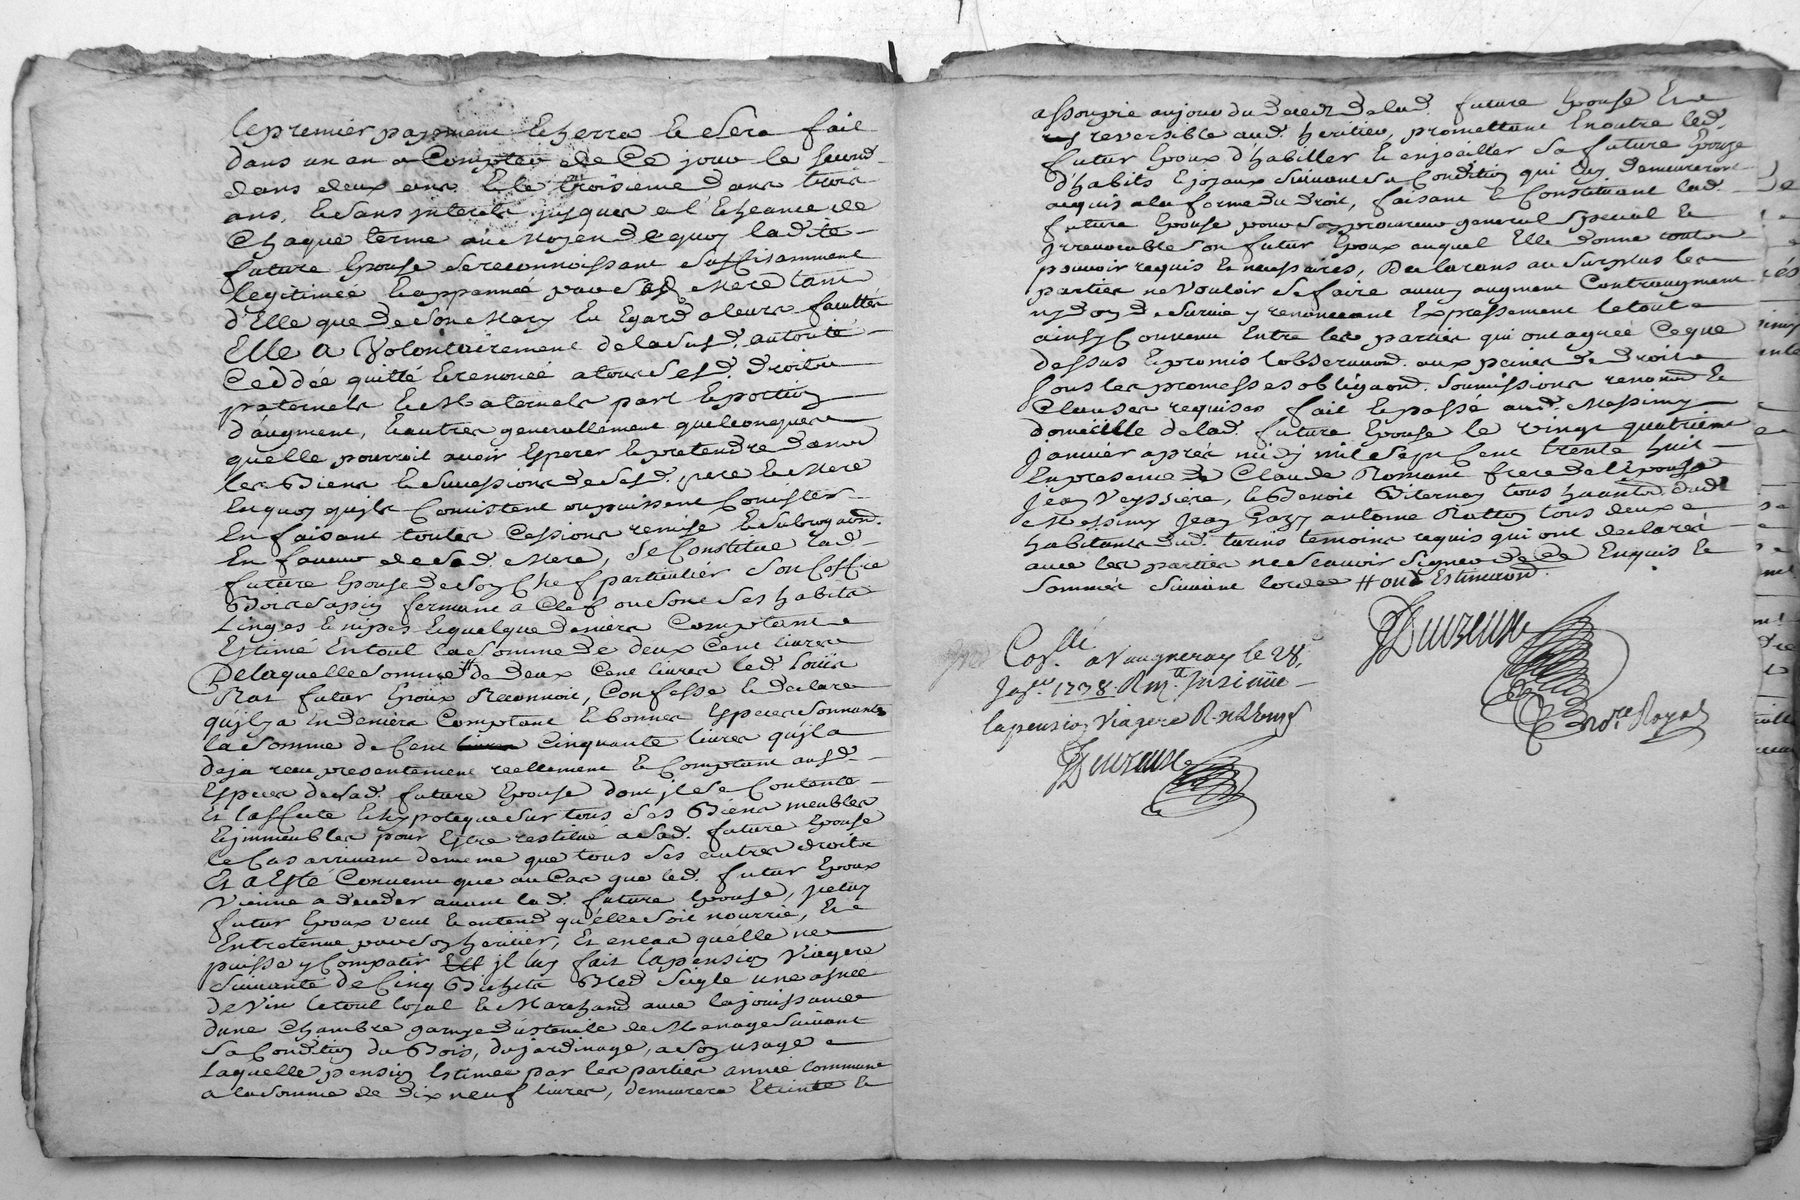 le premier payement Echerra Et Sera fait
dans un an a Compter de Ce jour le second
dans deux ans Et le troisieme dans trois
ans, Et sans jnterets jusques a l'Echeance de
Chaque terme au Moyen de quoy lad.te
future Epouse se reconnoissant suffisamment
legitimée Et appannée par sad. Mere tant
d'Elle que de son Mary Eu Egard a leurs facultés
Elle a Volontairement de la susd. autorité
Ceddée quitté Et renoncé a tous sesd. droits
paternels Et Maternels part Et portion
d'augment, Et autres generallement quelconques
qu'elle pourroit avoir Esperer Et pretendre dans
les Biens Et successions de sesd. pere Et Mere
En quoy qu'ils Consistent ou puissent Consister
En faisant toutes Cessions remise Et subrogaon.
En faveur de sad. Mere, se Constitue lad.
future Epouse de son Chef particulier son Coffre
Bois sapin fermant a Clef ou sont ses habits
Linges Et nipes Et quelque deniers Comptant
Estimé En tout la somme de deux Cent livres
De laquelle somme # de deux Cent livres led. Louis
Rat futur Epoux Reconnoit, Confesse Et declare
qu'il y a En deniers Comptant Et bonnes Especes sonnantes
la somme de Cent livres Cinquante livres qu'jl a
deja receu presentement reellement Et Comptant ausd.
Especes de sad. future Epouse dont jl se Contente
Et l'affecte Et hypoteque sur tous ses Biens meubles
Et jmmeubles pour Estre restitué a sad. future Epouse
le Cas arrivant de meme que tous ses autres droits
Et a Esté Convenu que au Cas que led. futur Epoux
Vienne a deceder avant lad. future Epouse, jceluy
futur Epoux veut Et entend qu'elle soit nourrie, Et
Entretenue par son heritier, Et en cas qu'elle ne
puisse y Compatir jl luy fait la pension Viagere
suivante de Cinq Bichets Bled Seigle une asnée
de Vin le tout loyal Et Marchand avec la jouissance
d'une Chambre garnye d'ustencile de Menage suivant
sa Condition du Bois, du jardinage, a son usage
Laquelle pension Estimée par les parties année commune
a la somme de dix neuf livres, demeurera Eteinte Et
assoupie au jour du deces de lad. future Epouse Et
reversible aud. heritier, promettant En outre led.
futur Epoux d'habiller Et enjoailler sa future Epouze
d'habits Et joyaux suivant sa Condition qui luy demeureront
acquis a la forme du droit, faisant Et Constituant lad.
future Epouse pour son procureur general special Et
jrrevocable son futur Epoux auquel Elle donne tout
pouvoir requis Et necessaires, Declarans au surplus les
parties ne Vouloir se faire aucun augment Contraugment
ny don de survie y renonceant Expressement le tout
ainsy Convenu Entre les parties qui ont agreé Ce que
dessus Et promis l'observaon. aux peines de droit
sous les promesses obligaon. soumissions renond. Et
Clauses requises fait Et passé aud. Messimy
domicille de lad. future Epouse le vingt quatrieme
janvier après midy mil sept Cent trente huit
En presence de Claude Romant frere de l'Epouse
Jean Veyssiere, Et Benoit Biternay tous habitans dud.
Messimy Jean Gazy antoine Ratton tous deux
habitants dud. turins temoins requis qui ont declarés
avec les parties ne scavoir signer de ce Enquis Et
sommés suivant lordce # ond Estimaond.
Duvzeuse
No.re Royal
Con.llé a Vaugneray le 28.
Jan.er 1738. R m.te Jnsinüe
la pension Viagere
Duvzeuse